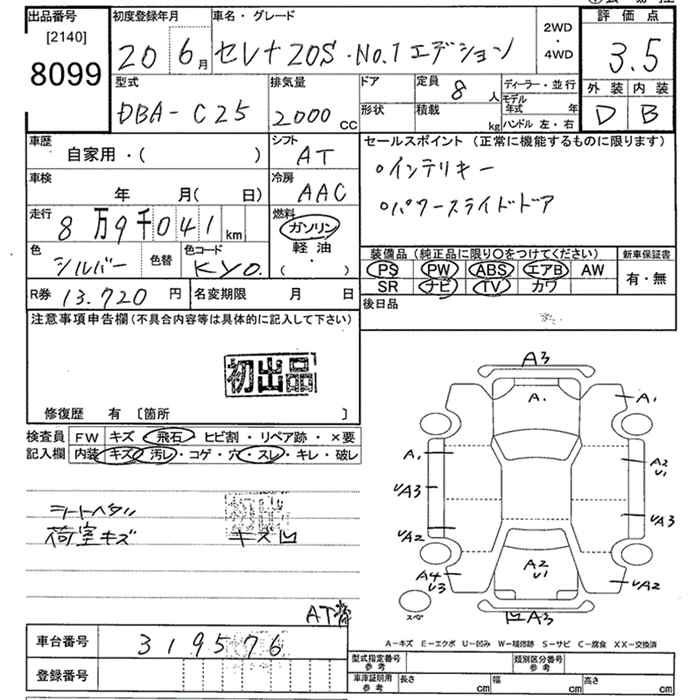 出品番号 初度登録年月 車名・グレード 2WD・4WD 評価点
[2140] 8099 20 6月 セレナ 20S・No.1エデション 3.5
型式 排気量 ドア 定員 8人 ディーラー・並行 外装 内装
DBA-C25 2000 CC 形状 積載 kg モデル年式 年 D B
ハンドル 左・右
車歴 シフト セールスポイント (正常に機能するものに限ります)
自家用・( ) AT ・インテリキー
車検 冷房
年 月(日) AAC ・パワースライドドア
走行 燃料
8万9千041 km ガソリン
軽油
( ・ )
色 色替 色コード 装備品 (純正品に限り○をつけてください) 新車保証書
シルバー KY0. PS PW ABS エアB AW 有・無
SR ナビ TV カワ
R券 13.720円 名変期限 月 日 後日品
注意事項申告欄 (不具合内容等は具体的に記入して下さい)
初出品
修復歴 有 [箇所 ]
検査員 FW キズ・飛石・ヒビ割・リペア跡・×要
記入欄 内装 キズ・汚レ・コゲ・穴・スレ・キレ・破レ
シートヘタリ
荷室キズ キズ凹
A3
A. A.
A. A2 U1
UA3 UA3
UA2
A4 U3 A2 U1 UA2
スペア 凹A3
AT
A-キズ E-エクボ U-凹み W-補修跡 S-サビ C-腐食 XX-交換済
車台番号 319576
登録番号
型式指定番号 参考 類別区分番号 参考
車庫証明用 参考 長さ cm 幅 cm 高さ cm